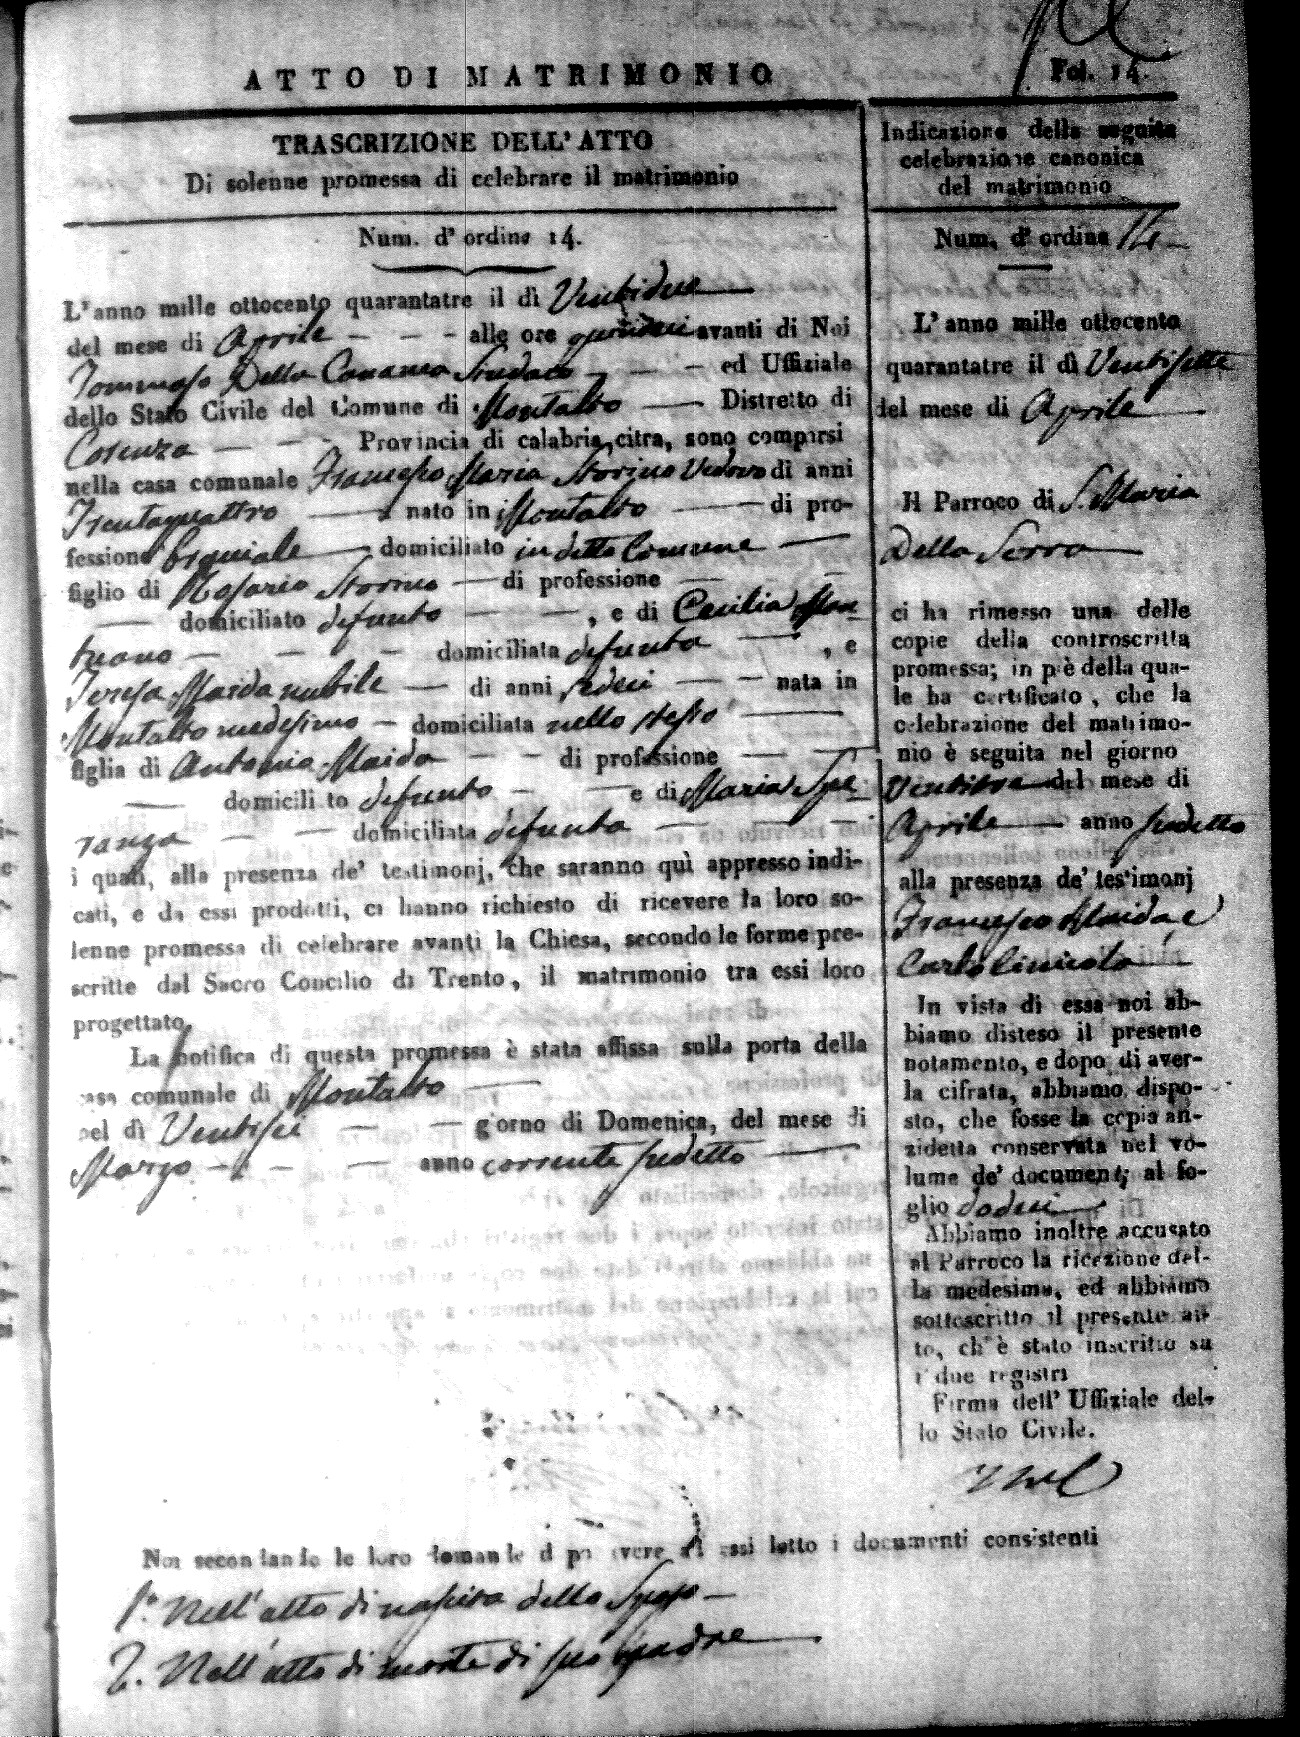 ATTO DI MATRIMONIO
Fol. 14.
TRASCRIZIONE DELL' ATTO
Di solenne promessa di celebrare il matrimonio
Num. d' ordine 14.
L' anno mille ottocento quarantatre il dì Ventidue
del mese di Aprile alle ore quindici avanti di Noi
Tommaso Della Cananea Sindaco ed Uffiziale
dello Stato Civile del Comune di Montalto Distretto di
Cosenza Provincia di calabria citra, sono comparsi
nella casa comunale Francesco Maria Storino Vedovo di anni
Trentaquattro nato in Montalto di pro-
fessione domiciliato in detto Comune
figlio di Rosario Storino di professione
domiciliato defunto , e di Cecilia Man
domiciliata defunta , e
Teresa Maida nubile di anni sedici nata in
Montalto medesimo domiciliata nello stesso
figlia di Antonio Maida di professione
domicili to defunto e di Maria Spe
ranza domiciliata defunta
i quali, alla presenza de' testimonj, che saranno quì appresso indi-
cati, e da essi prodotti, ci hanno richiesto di ricevere la loro so-
lenne promessa di celebrare avanti la Chiesa, secondo le forme pre-
scritte dal Sacro Concilio di Trento, il matrimonio tra essi loro
progettato
La notifica di questa promessa è stata affissa sulla porta della
casa comunale di Montalto
nel dì Ventisei giorno di Domenica, del mese di
Marzo anno corrente sudetto
Indicazione della seguita
celebrazione canonica
del matrimonio
Num. d' ordine 14
L' anno mille ottocento
quarantatre il dì Ventisette
del mese di Aprile
Il Parroco di S. Maria
Della Serra
ci ha rimesso una delle
copie della controscritta
promessa; in piè della qua-
le ha certificato, che la
celebrazione del matrimo-
nio è seguita nel giorno
Ventitre del mese di
Aprile anno sudetto
alla presenza de' testimonj
Francesco Maida e
Carlo
In vista di essa noi ab-
biamo disteso il presente
notamento, e dopo di aver-
la cifrata, abbiamo dispo-
sto, che fosse la copia an-
zidetta conservata nel vo-
lume de' documenti al fo-
glio dodici
Abbiamo inoltre accusato
al Parroco la ricezione del-
la medesima, ed abbiamo
sottoscritto il presente at-
to, ch' è stato inscritto su
i due registri
Firma dell' Uffiziale del-
lo Stato Civile.
Noi secondando le loro domande d essi letto i documenti consistenti
1.° Nell' atto di nascita dello Sposo
2. Nell' atto di morte di suo padre